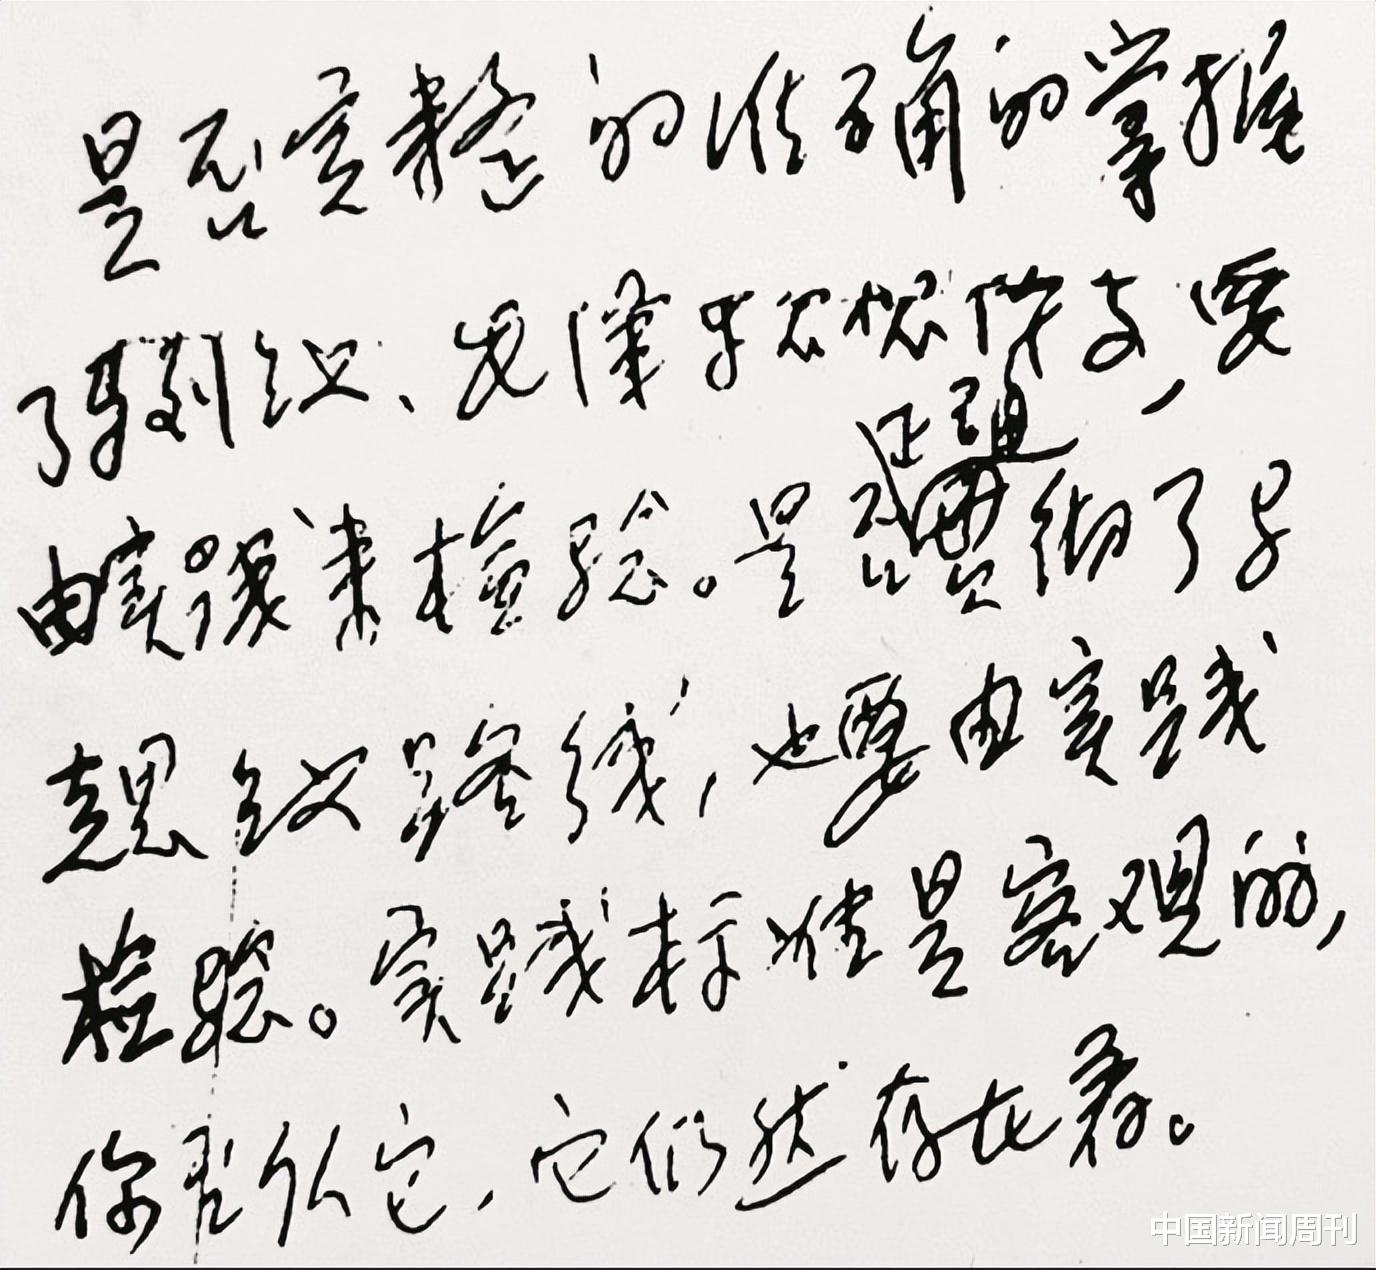 是否完整的准确的掌握
了马列主义、毛泽东思想体系，要
由实践来检验。是否正确贯彻了
克思主义路线，也要由实践
检验。实践标准是客观的，
你否认它，它仍然存在着。
中国新闻周刊